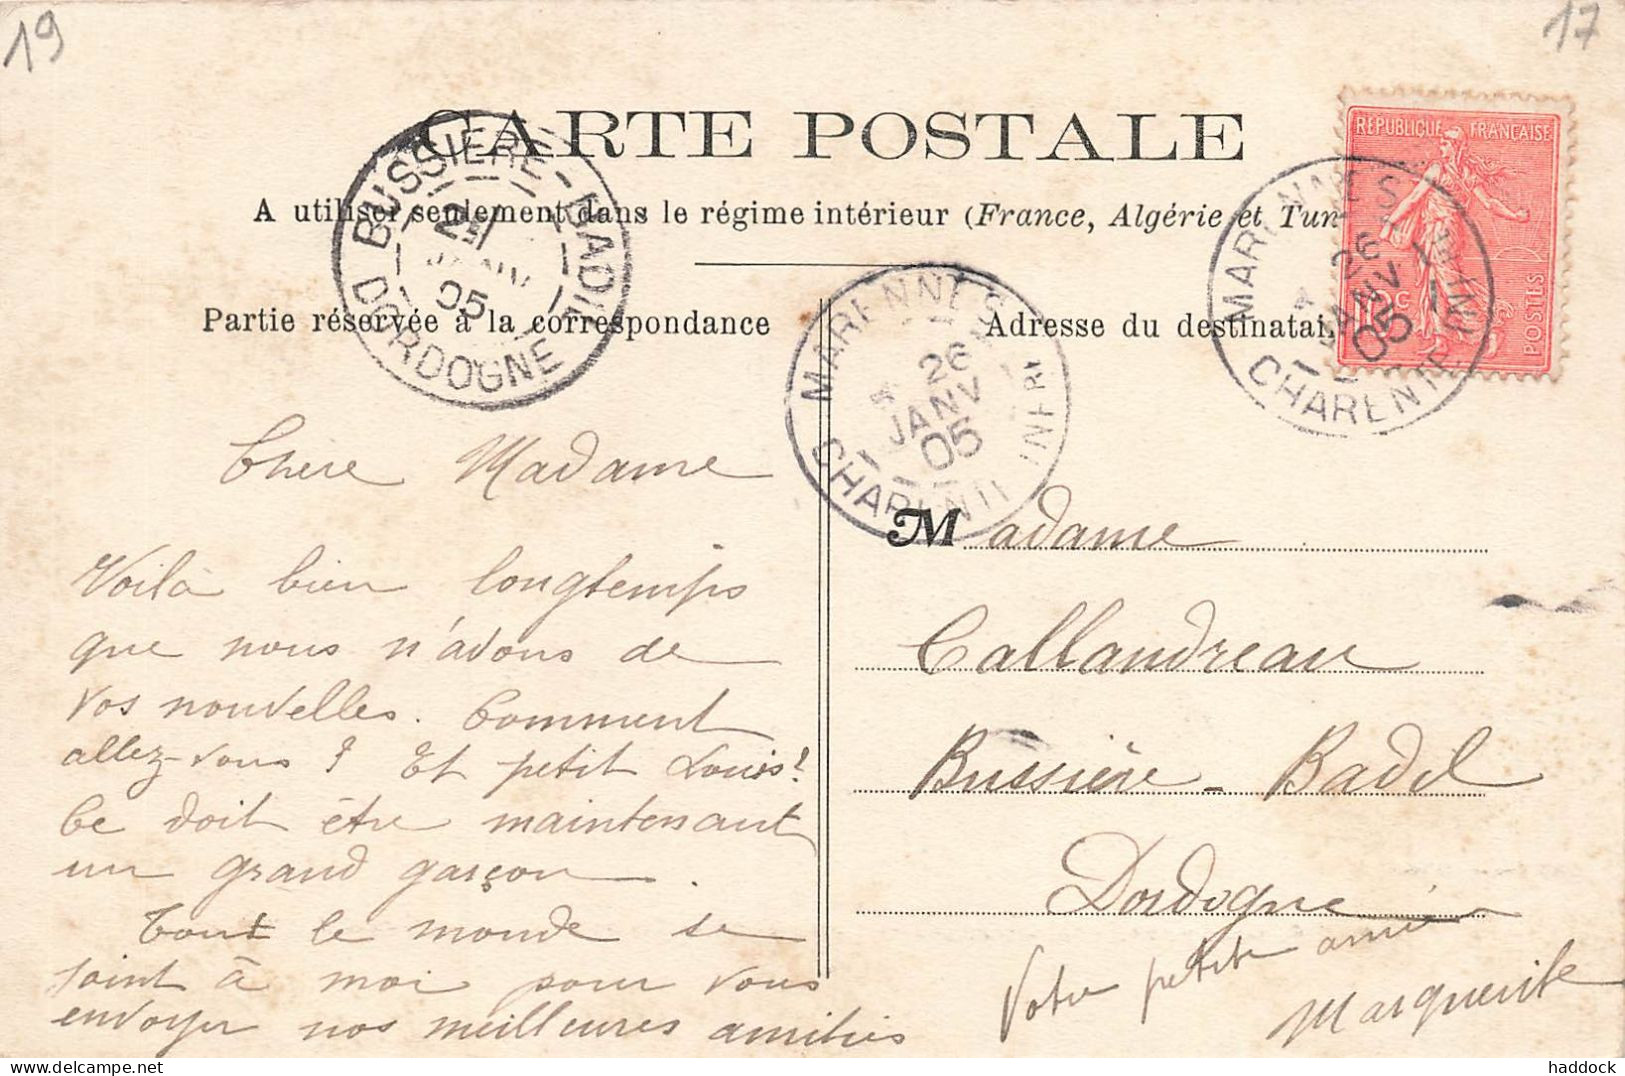 19
17
CARTE POSTALE
A utiliser seulement dans le régime intérieur (France, Algérie et Tun
RÉPUBLIQUE FRANÇAISE
POSTES
BUSSIÈRE-BADIL
JANV
05
DORDOGNE
MARENNES
26
JANV
05
CHARENTE INFRE
MARENNES
26
JANV
05
CHARENTE INFRE
Partie réservée à la correspondance
Adresse du destinatai
Chère Madame
Voilà bien longtemps
que nous n'avons de
vos nouvelles. Comment
allez-vous ? Et petit Louis?
Ce doit être maintenant
un grand garçon.
Tout le monde se
joint à moi pour vous
envoyer nos meilleures amitiés
Madame
Callandreau
Bussière-Badil
Dordogne
Votre petite amie
Marguerite
haddock